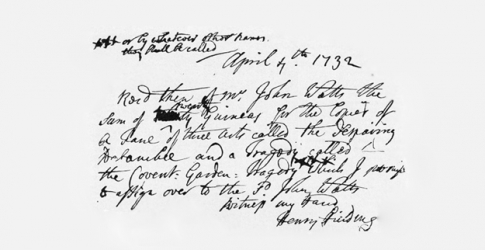 or by whatever other name
they shall be called
April 4th. 1732
Rec'd then of Mr. John Watts the
Sum of twenty Guineas for the Copies of
a Farce of three acts called the Despairing
Debauchee and a Tragedy called
the Covent: Garden: Tragedy which I promise
to assign over to the sd. John Watts
Witness my Hand
Henry Fielding